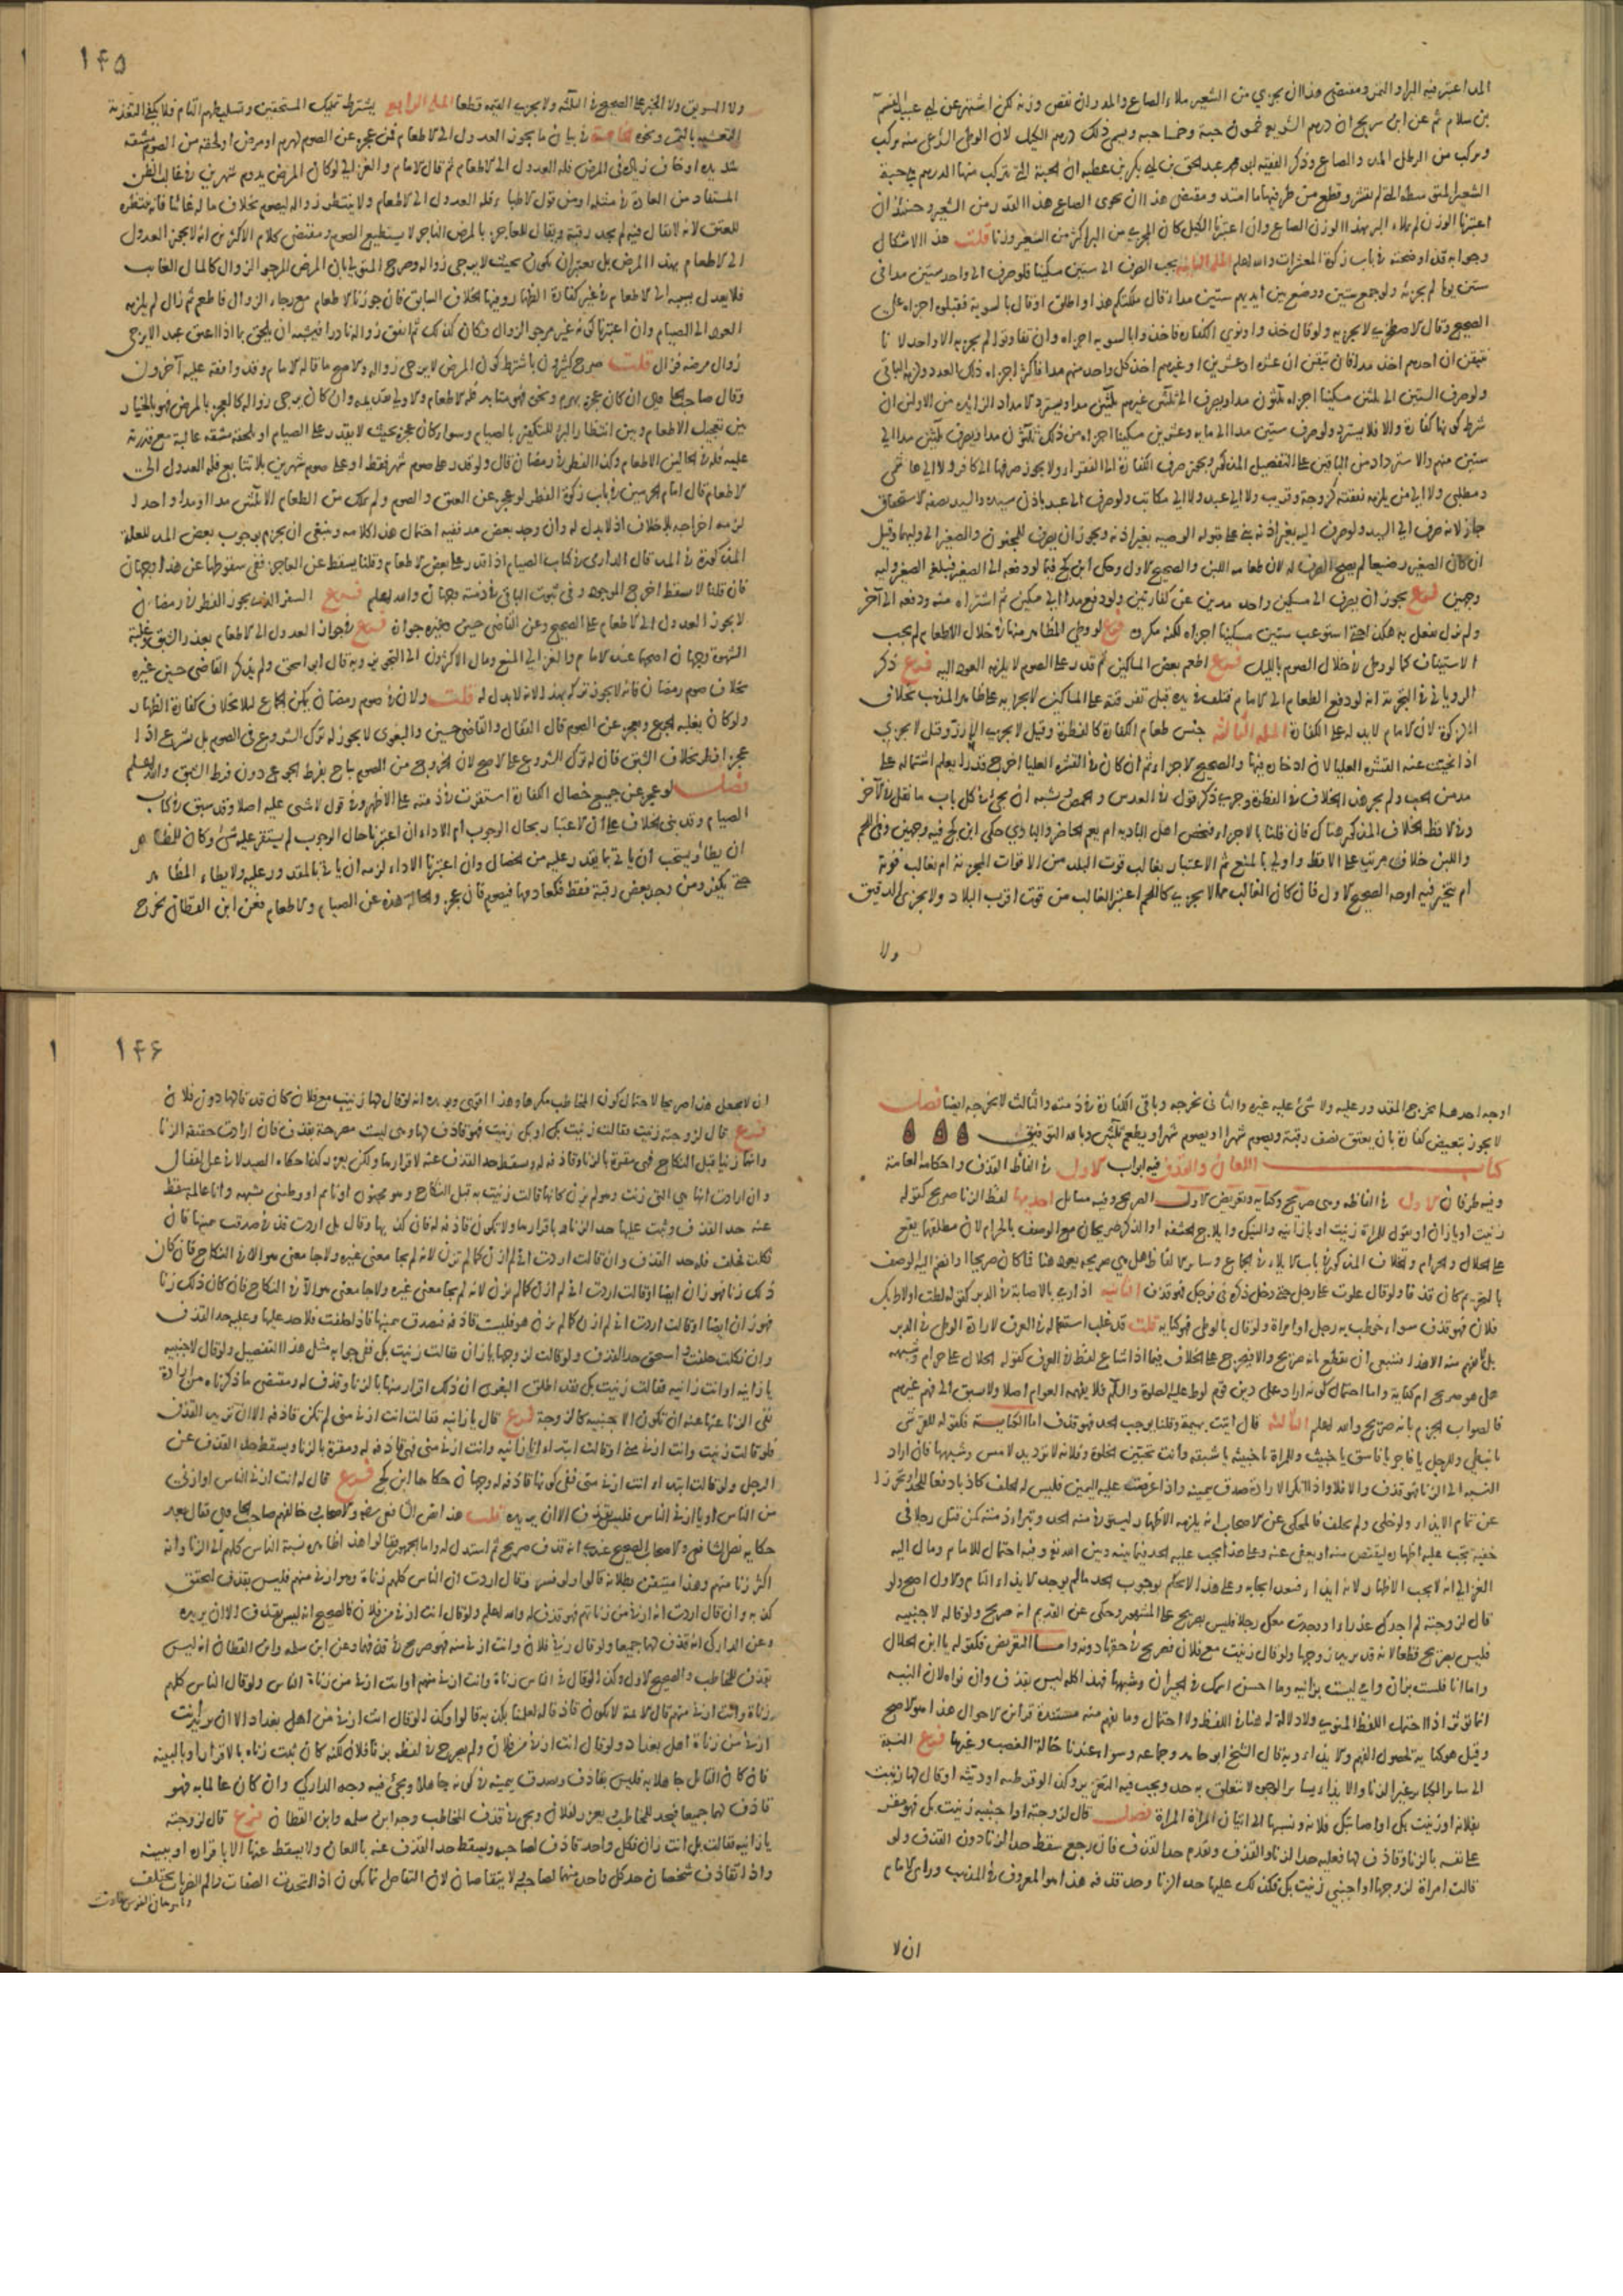 المد اعتبر فيه البر او التمر ومقتضى هذا ان يجزي من الشعير ملاء الصاع والمد وان نقص وزنه لكن اشتهر عن ابي عبيد القسم
بن سلام ثم عن ابن سريج ان درهم الشريعة خمسون حبة وخمسا حبة ويسمى ذلك درهم الكيل لان الرطل الشرعي منه يركب
ويركب من الرطل المد والصاع وذكر الفقيه ابو محمد عبد الحق بن ابي بكر بن عطيه ان الحبة التي يتركب منها الدرهم هي حبة
الشعير المتوسطة التي لم تقشر وقطع من طرفيها ما امتد ومقتضى هذا ان يحوى الصاع هذا القدر من الشعير وحينئذ ان
اعتبرنا الوزن لم يملاء البر بهذا الوزن الصاع وان اعتبرنا الكيل كان المجزي من البر اكثر من الشعير وزنا قلت هذا الاشكال
وجوابه قد اوضحته في باب زكوة المعشرات والله اعلم المسئلة الثانية يجب الصرف الى ستين مسكينا فلو صرف الى واحد ستين مدا في
ستين يوما لم يجزئه ولو جمع ستين ووضع بين ايديهم ستين مداء وقال ملكتكم هذا واطلق او قال بالسوية فقبلوه اجزاه على
الصحيح وقال الاصطخري لا يجزيه ولو قال خذوا ونوى الكفارة فاخذوا بالسويه اجزاه وان تفاوتوا لم يجزيه الا واحد لانا
نتيقن ان احدهم اخذ مدا فان تيقن ان عشرة او عشرين او غيرهم اخذ كل واحد منهم مدا فاكثر اجزاه ذلك العدد ولزمه الباقي
ولو صرف الستين الى ثلثين مسكينا اجزاه ثلثون مدا ويصرف الى ثلثين غيرهم ثلثين مدا ويسترد الامداد الزايدة من الاولين ان
شرط كونها كفارة والا فلا يسترد ولو صرف ستين مدا الى مايه وعشرين مسكينا اجزاه من ذلك ثلثون مدا ويصرف ثلثين مدا الى
ستين منهم والاسترداد من الباقين على التفصيل المذكور ويجوز صرف الكفارة الى الفقراء ولا يجوز صرفها الى كافر ولا الى هاشمي
ومطلبي ولا الى من يلزمه نفقته كزوجة وقريب ولا الى عبد ولا الى مكاتب ولو صرف الى عبد باذن سيده والسيد بصفة الاستحقاق
جاز لانه صرف الى السيد ولو صرف اليه بغير اذنه بني على قبوله الوصيه بغير اذنه ويجوز ان يصرف للمجنون والصغير الى وليهما وقيل
ان كان الصغير رضيعا لم يصح الصرف له لان طعامه اللبن والصحيح الاول وحكى ابن كج فيما لو دفعه الى الصغير فبلغه الصغير وليه
وجهين فرع يجوز ان يصرف الى مسكين واحد مدين عن كفارتين ولو دفع مدا الى مسكين ثم اشتراه منه ودفعه الى آخر
ولم يزل يفعل به هكذا حتى استوعب ستين مسكينا اجزاه لكنه مكروه فرع لو وطي المظاهر منها في خلال الاطعام لم يجب
الاستيناف كما لو وطي في خلال الصوم بالليل فرع اطعم بعض المساكين ثم قدر على الصوم لا يلزمه العود اليه فرع ذكر
الروياني في التجربة انه لو دفع الطعام الى الامام فتلف في يده قبل تفرقته على المساكين لا يجزيه على ظاهر المذهب بخلاف
الزكوة لان الامام لا يد له على الكفارة المسئلة الثالثة جنس طعام الكفارة كالفطرة وقيل لا يجزيه الارز وقيل لا يجزي
اذا نحيت عنه القشرة العليا لان ادخاره فيها والصحيح الاجزاء ثم ان كان في القشرة العليا اخرج قدرا يعلم اشتماله على
مد من الحب ولم يجر هذا الخلاف في الفطرة وجرى ذكر قول في العدس والحمص ويشبه ان يجئ في كل باب ما نقل في الآخر
وفي الاقط الخلاف المذكور هناك فان قلنا بالاجزاء فيخص اهل البادية ام يعم الحاضر والبادي حكى ابن كج فيه وجهين وفي اللحم
واللبن خلاف مرتب على الاقط واولى بالمنع ثم الاعتبار بغالب قوت البلد من الاقوات المجزئة ام بغالب قوته
ام يتخير فيه اوجه الصحيح الاول فان كان الغالب مما لا يجزيه كاللحم اعتبر الغالب من قوت اقرب البلاد ولا يجزى الدقيق
ولا
١٤٥
ولا السويق ولا الخبز على الصحيح في الثلثة ولا يجزي القيمة قطعا المسئلة الرابعة يشترط تمليك المستحقين وتسليطهم التام فلا يكفي التغذية
والتعشية بالتمر ونحوه الخامسة في بيان ما يجوز العدول الى الاطعام فمن عجز عن الصوم لهرم او مرض او لحقته من الصوم مشقه
شديدة او خاف زيادة في المرض فله العدول الى الاطعام ثم قال الامام والغزالي لو كان المرض يدوم شهرين في غالب الظن
المستفاد من العادة في مثله او من قول الاطباء فله العدول الى الاطعام ولا ينتظر زواله ليصوم بخلاف ماله غائبا فانه ينتظره
للعتق لانه لا يقال فيه لم يجد رقبة ويقال للعاجز بالمرض الناجز لا يستطيع الصوم ومقتضى كلام الاكثرين انه لا يجوز العدول
الى الاطعام بهذا المرض بل يعتبر ان يكون بحيث لا يرجى زواله وصرح المتولي بان المرض المرجو الزوال كالمال الغايب
فلا يعدل بسببه الى الاطعام في غير كفارة الظهار وفيها الخلاف السابق فان جوزنا الاطعام مع رجاء الزوال فاطعم ثم زال لم يلزمه
العود الى الصيام وان اعتبرنا كونه غير مرجو الزوال وكان كذلك ثم اتفق زواله نادرا فيشبه ان يلحق بما اذا اعتق عبدا لا يرجى
زوال مرضه فزال قلت صرح كثيرون باشتراط كون المرض لا يرجى زواله والاصح ما قاله الامام وقد وافقه عليه آخرون
وقال صاحب الحاوي ان كان عجزه بهرم ونحوه فهو متابد فله الاطعام والاولى تقديمه وان كان يرجى زواله كالعجز بالمرض فهو بالخيار
بين تعجيل الاطعام وبين انتظار البرؤ للتكفير بالصيام وسواء كان عجزه بحيث لا يقدر على الصيام او يلحقه مشقه غالبة مع قدرته
عليه فله في الحالين الاطعام وكذا الفطر في رمضان قال ولو قدر على صوم شهر فقط او على صوم شهرين بلا تتابع فله العدول الى
الاطعام قال امام الحرمين في باب زكوة الفطر لو عجز عن العتق والصوم ولم يملك من الطعام الا ثلثين مدا او مدا واحدا
لزمه اخراجه بلا خلاف اذ لا بدل له وان وجد بعض مد ففيه احتمال هذا كلامه وينبغي ان يجزم بوجوب بعض المد للعلة
المذكورة في المد قال الدارمي في كتاب الصيام اذا قدر على بعض الاطعام وقلنا يسقط عن العاجز ففي سقوطها عن هذا وجهان
فان قلنا لا يسقط اخرج الموجود وفي ثبوت الباقي في ذمته وجهان والله اعلم فرع السفر الذي يجوز الفطر في رمضان
لا يجوز العدول الى الاطعام على الصحيح وعن القاضي حسين وغيره جوازه فرع في جواز العدول الى الاطعام بعذر الشبق وغلبة
الشهوة وجهان اصحهما عند الامام والغزالي المنع ومال الاكثرون الى التجويز وبه قال ابو اسحق ولم يذكر القاضي حسين غيره
بخلاف صوم رمضان فانه لا يجوز تركه بهذا لانه لا بدل له قلت ولان في صوم رمضان يمكن الجماع ليلا بخلاف كفارة الظهار
ولو كان يغلبه الجوع ويعجز عن الصوم قال القفال والقاضي حسين والبغوى لا يجوز له ترك الشروع في الصوم بل يشرع اذا
عجز افطر بخلاف الشبق فان له ترك الشروع على الاصح لان الخروج من الصوم يباح بفرط الجوع دون فرط الشبق والله اعلم
فصل لو عجز عن جميع خصال الكفارة استقرت في ذمته على الاظهر وفي قول لا شي عليه اصلا وقد سبق في كتاب
الصيام وقد بني الخلاف على ان الاعتبار بحال الوجوب ام الاداء ان اعتبرنا حال الوجوب لم يستقر عليه شئ وكان للمظاهر
ان يطأ ويستحب ان ياتي بما يقدر عليه من الخصال وان اعتبرنا الاداء لزمه ان ياتي بالمقدور عليه ولا يطاء المظاهر
حتى يكفر ومن وجد بعض رقبة فقط فكعادمها فيصوم فان عجز والحالة هذه عن الصيام والاطعام فعن ابن القطان تخرج
اوجه احدها يخرج المقدور عليه ولا شئ عليه غيره والثاني يخرجه وباقي الكفارة في ذمته والثالث لا يخرجه ايضا فصل
لا يجوز تبعيض كفارة بان يعتق نصف رقبة ويصوم شهرا او يصوم شهرا ويطعم ثلثين وبالله التوفيق
كتاب اللعان والقذف فيه ابواب الاول في الفاظ القذف واحكامه العامة
وفيه طرفان الاول في الفاظه وهي صريح وكنايه وتعريض الاول الصريح وفيه مسايل احديها لفظ الزنا صريح كقوله
زنيت او يا زان او يقول للمراة زنيت او يا زانيه والنيك وايلاج الحشفه او الذكر صريحان مع الوصف بالحرام لان مطلقها يقع
على الحلال والحرام والخلاف المذكور في باب الايلاء في الجماع وساير الالفاظ هل هي صريحه يعود هنا فما كان صريحا وانضم اليه الوصف
بالتحريم كان قذفا ولو قال علوت على رجل حتى دخل ذكره في فرجك فهو قذف الثانيه اذا رمى بالاصابة في الدبر كقوله لطت او لاط بك
فلان فهو قذف سواء خوطب به رجل او امراة ولو قال يا لوطي فهو كنايه قلت قد غلب استعماله في العرف لارادة الوطي في الدبر
بل لا يفهم منه الا هذا فينبغي ان يقطع بانه صريح والا فيخرج على الخلاف فيما اذا شاع لفظ في العرف كقوله الحلال على حرام وشبهه
هل هو صريح ام كناية واما احتمال كونه اراد على دين قوم لوط عليه الصلوة والسلم فلا يفهمه العوام اصلا ولا يسبق الى فهم غيرهم
فالصواب الجزم بانه صريح والله اعلم الثالثة قال اتيت بهيمة وقلنا يوجب الحد فهو قذف اما الكناية فكقوله للقرشي
يا نبطي وللرجل يا فاجر يا فاسق يا خبيث وللمراة يا خبيثة يا شبقه وانت تحبين الخلوة وفلانه لا ترد يد لامس وشبهها فان اراد
النسبه الى الزنا فهو قذف والا فلا واذا انكر الارادة صدق بيمينه واذا عرضت عليه اليمين فليس له الحلف كاذبا دفعا للحد او تحرزا
عن تمام الايذاء ولو خلى ولم يحلف فالمحكي عن الاصحاب انه يلزمه الاظهار ليستوفي منه الحد وتبراء ذمته كمن قتل رجلا في
خفية يجب عليه اظهاره ليقتص منه او يعفى عنه وعلى هذا يجب عليه الحد فيما بينه وبين الله تع وفيه احتمال للامام ومال اليه
الغزالي انه لا يجب الاظهار لانه ايذاء فيبعد ايجابه وعلى هذا لا يحكم بوجوب الحد مالم يوجد الايذاء التام والاول اصح ولو
قال لزوجته لم اجدك عذراء او وجدت معك رجلا فليس بصريح على المشهور وحكى عن القديم انه صريح ولو قاله لاجنبيه
فليس بصريح قطعا لانه قد يريد زوجها ولو قال زنيت مع فلان فصريح في حقها دونه واما التعريض فكقوله يا ابن الحلال
واما انا فلست بزان وامي ليست بزانيه وما احسن اسمك في الجيران وشبهها فهذا كله ليس بقذف وان نواه لان النيه
انما تؤثر اذا احتمل اللفظ المنوي ولا دلالة له هنا في اللفظ ولا احتمال وما يفهم منه مستنده قراين الاحوال هذا هو الاصح
وقيل هو كنايه لحصول الفهم والايذاء وبه قال الشيخ ابو حامد وجماعه وسواء عندنا حالة الغضب وغيرها فرع النسبة
الى ساير الكباير غير الزنا والايذاء بساير الوجوه لا يتعلق به حد ويجب فيه التعزير وكذا لو قرطبه او ديثه او قال لها زنيت
بفلانه او زنيت بك او اصابتك فلانه ونسبها الى اتيان المراة المراة فصل قال لزوجته او اجنبيه زنيت بك فهو مقر
على نفسه بالزنا وقاذف لها فعليه حد الزنا والقذف ويقدم حد القذف فان رجع سقط حد الزنا دون القذف ولو
قالت امراة لزوجها او اجنبي زنيت بك فكذلك عليها حد الزنا وحد قذفه هذا هو المعروف في المذهب وراى الامام
ان لا
١٤٦
ان لا يجعل هذا صريحا لاحتمال كون المخاطب مكرها وهذا اقوى ويؤيده انه لو قال لها زنيت مع فلان كان قذفا لها دون فلان
فرع قال لزوجته زنيت فقالت زنيت بك او بك زنيت فهو قاذف لها وهي ليست مصرحة بقذف فان ارادت حقيقة الزنا
وانها زنيا قبل النكاح فهي مقرة بالزنا وقاذفه له ويسقط حد القذف عنه لاقرارها ولكن يعزر كذا حكاه الصيدلاني عن القفال
وان ارادت انها هي التي زنت وهو لم يزن كانها قالت زنيت به قبل النكاح وهو مجنون او نايم او وطئني بشبهه وانا عالمه سقط
عنه حد القذف وثبت عليها حد الزنا باقرارها ولا يكون قاذفه له فان كذبها وقال بل اردت قذفي صدقت بيمينها فان
نكلت حلف فله حد القذف وان قالت اردت اني لم ازن كما لم تزن لانه لم يجامعني غيره ولا جامعني هو الا في النكاح فان كان
ذلك زنا فهو زان ايضا او قالت اردت اني لم ازن كما لم يزن لانه لم يجامعني غيره ولا جامعني هو الا في النكاح فان كان ذلك زنا
فهو زان ايضا او قالت اردت اني لم ازن كما لم يزن هو فليست قاذفه فتصدق بيمينها فاذا حلفت فلا حد عليها وعليه حد القذف
وان نكلت حلف واستحق حد القذف ولو قالت لزوجها يا زان فقالت زنيت بك ففي جوابه مثل هذا التفصيل ولو قال لاجنبيه
يا زانيه او انت زانيه فقالت زنيت بك فقد اطلق البغوى ان ذلك اقرار منها بالزنا وقذف له ومقتضى ما ذكرناه من ارادة
نفي الزنا عنها وعنه ان تكون الاجنبيه كالزوجة فرع قال يا زانيه فقالت انت ازنى مني لم تكن قاذفه الا ان تريد القذف
فلو قالت زنيت وانت ازنى مني او قالت ابتداء انا زانيه وانت ازنى مني فهي قاذفه له ومقرة بالزنا ويسقط حد القذف عن
الرجل ولو قالت ابتداء انت ازنى مني ففي كونها قاذفه له وجهان حكاهما ابن كج فرع قال له انت ازنى الناس او ازنى
من الناس او يا ازنى الناس فليس بقذف الا ان يريده قلت هذا نص الشافعي رضه والاصحاب خالفهم صاحب الحاوي فقال بعد
حكايه نص الشافعي والاصحاب الصحيح عندي انه قذف صريح ثم استدل له واما الجمهور فقالوا هذا ظاهره نسبة الناس كلهم الى الزنا وانه
اكثر زنا منهم وهذا متيقن بطلانه قالوا ولو فسر وقال اردت ان الناس كلهم زناة وهو ازنى منهم فليس بقذف لتحقق
كذبه وان قال اردت انه ازنى من زناتهم فهو قذف له والله اعلم ولو قال انت ازنى من فلان فالصحيح انه ليس بقذف الا ان يريده
وعن الداركي انه قذف لهما جميعا ولو قال زنى فلان وانت ازنى منه فهو صريح في قذفهما وعن ابن سلمه وابن القطان انه ليس
بقذف للمخاطب والصحيح الاول وكذا لو قال في الناس زناة وانت ازنى منهم او انت ازنى من زناة الناس ولو قال الناس كلهم
زناة وانت ازنى منهم قال الائمة لا يكون قاذفا له لعلمنا بكذبه قالوا وكذا لو قال انت ازنى من اهل بغداد الا ان يريد انت
ازنى من زناة اهل بغداد ولو قال انت ازنى من فلان ولم يصرح في لفظه بزنا فلان لكنه كان ثبت زناه بالاقرار او بالبينه
فان كان القايل جاهلا به فليس بقاذف ويصدق بيمينه في كونه جاهلا ويجئ فيه وجه الداركي وان كان عالما به فهو
قاذف لهما جميعا فيحد للمخاطب ويعزر لفلان ويجئ في قذف المخاطب وجه ابن سلمه وابن القطان فرع قال لزوجته
يا زانيه فقالت بل انت زان فكل واحد قاذف لصاحبه ويسقط حد القذف عنه باللعان ولا يسقط عنها الا باقراره او ببينه
واذا تقاذف شخصان حد كل واحد منهما لصاحبه ولا يتقاصان لان التقاص انما يكون اذا اتحدت الصفات والم الضربات يختلف